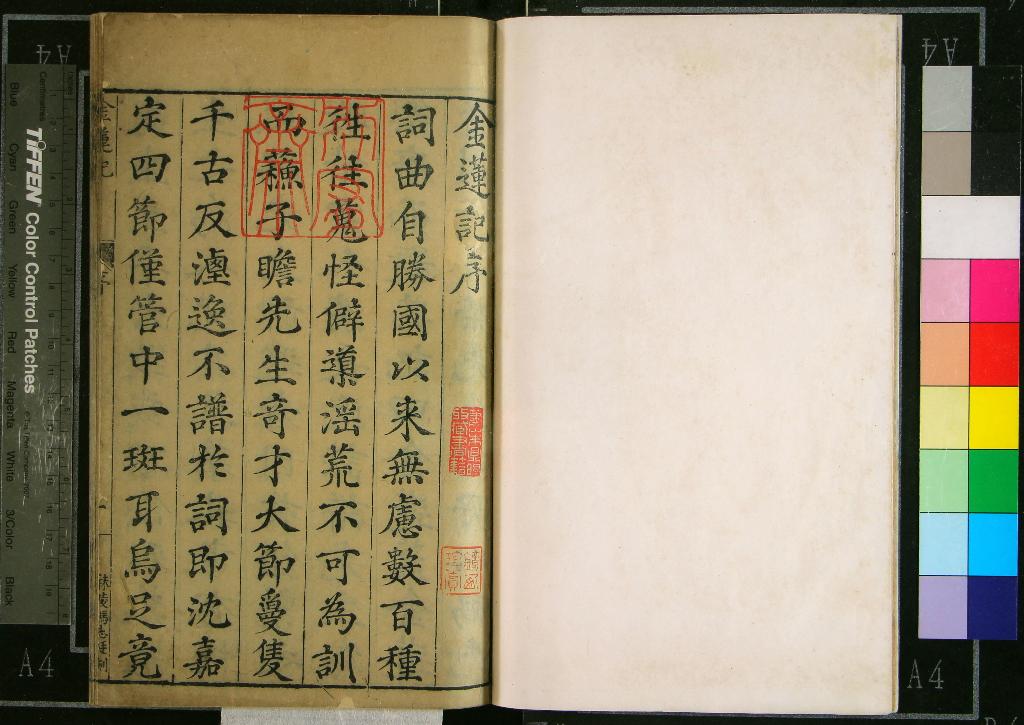 金蓮記序
詞曲自勝國以来無慮數百種
徃徃蒐怪僻導滛荒不可為訓
而蘓子瞻先生竒才大節敻隻
千古反湮逸不譜於詞即沈嘉
定四節僅管中一斑耳烏足竟
金蓮記
序
一
A4
A4
A4
A4
TIFFEN Color Control Patches
Blue
Cyan
Green
Yellow
Red
Magenta
White
3/Color
Black
Centimetres